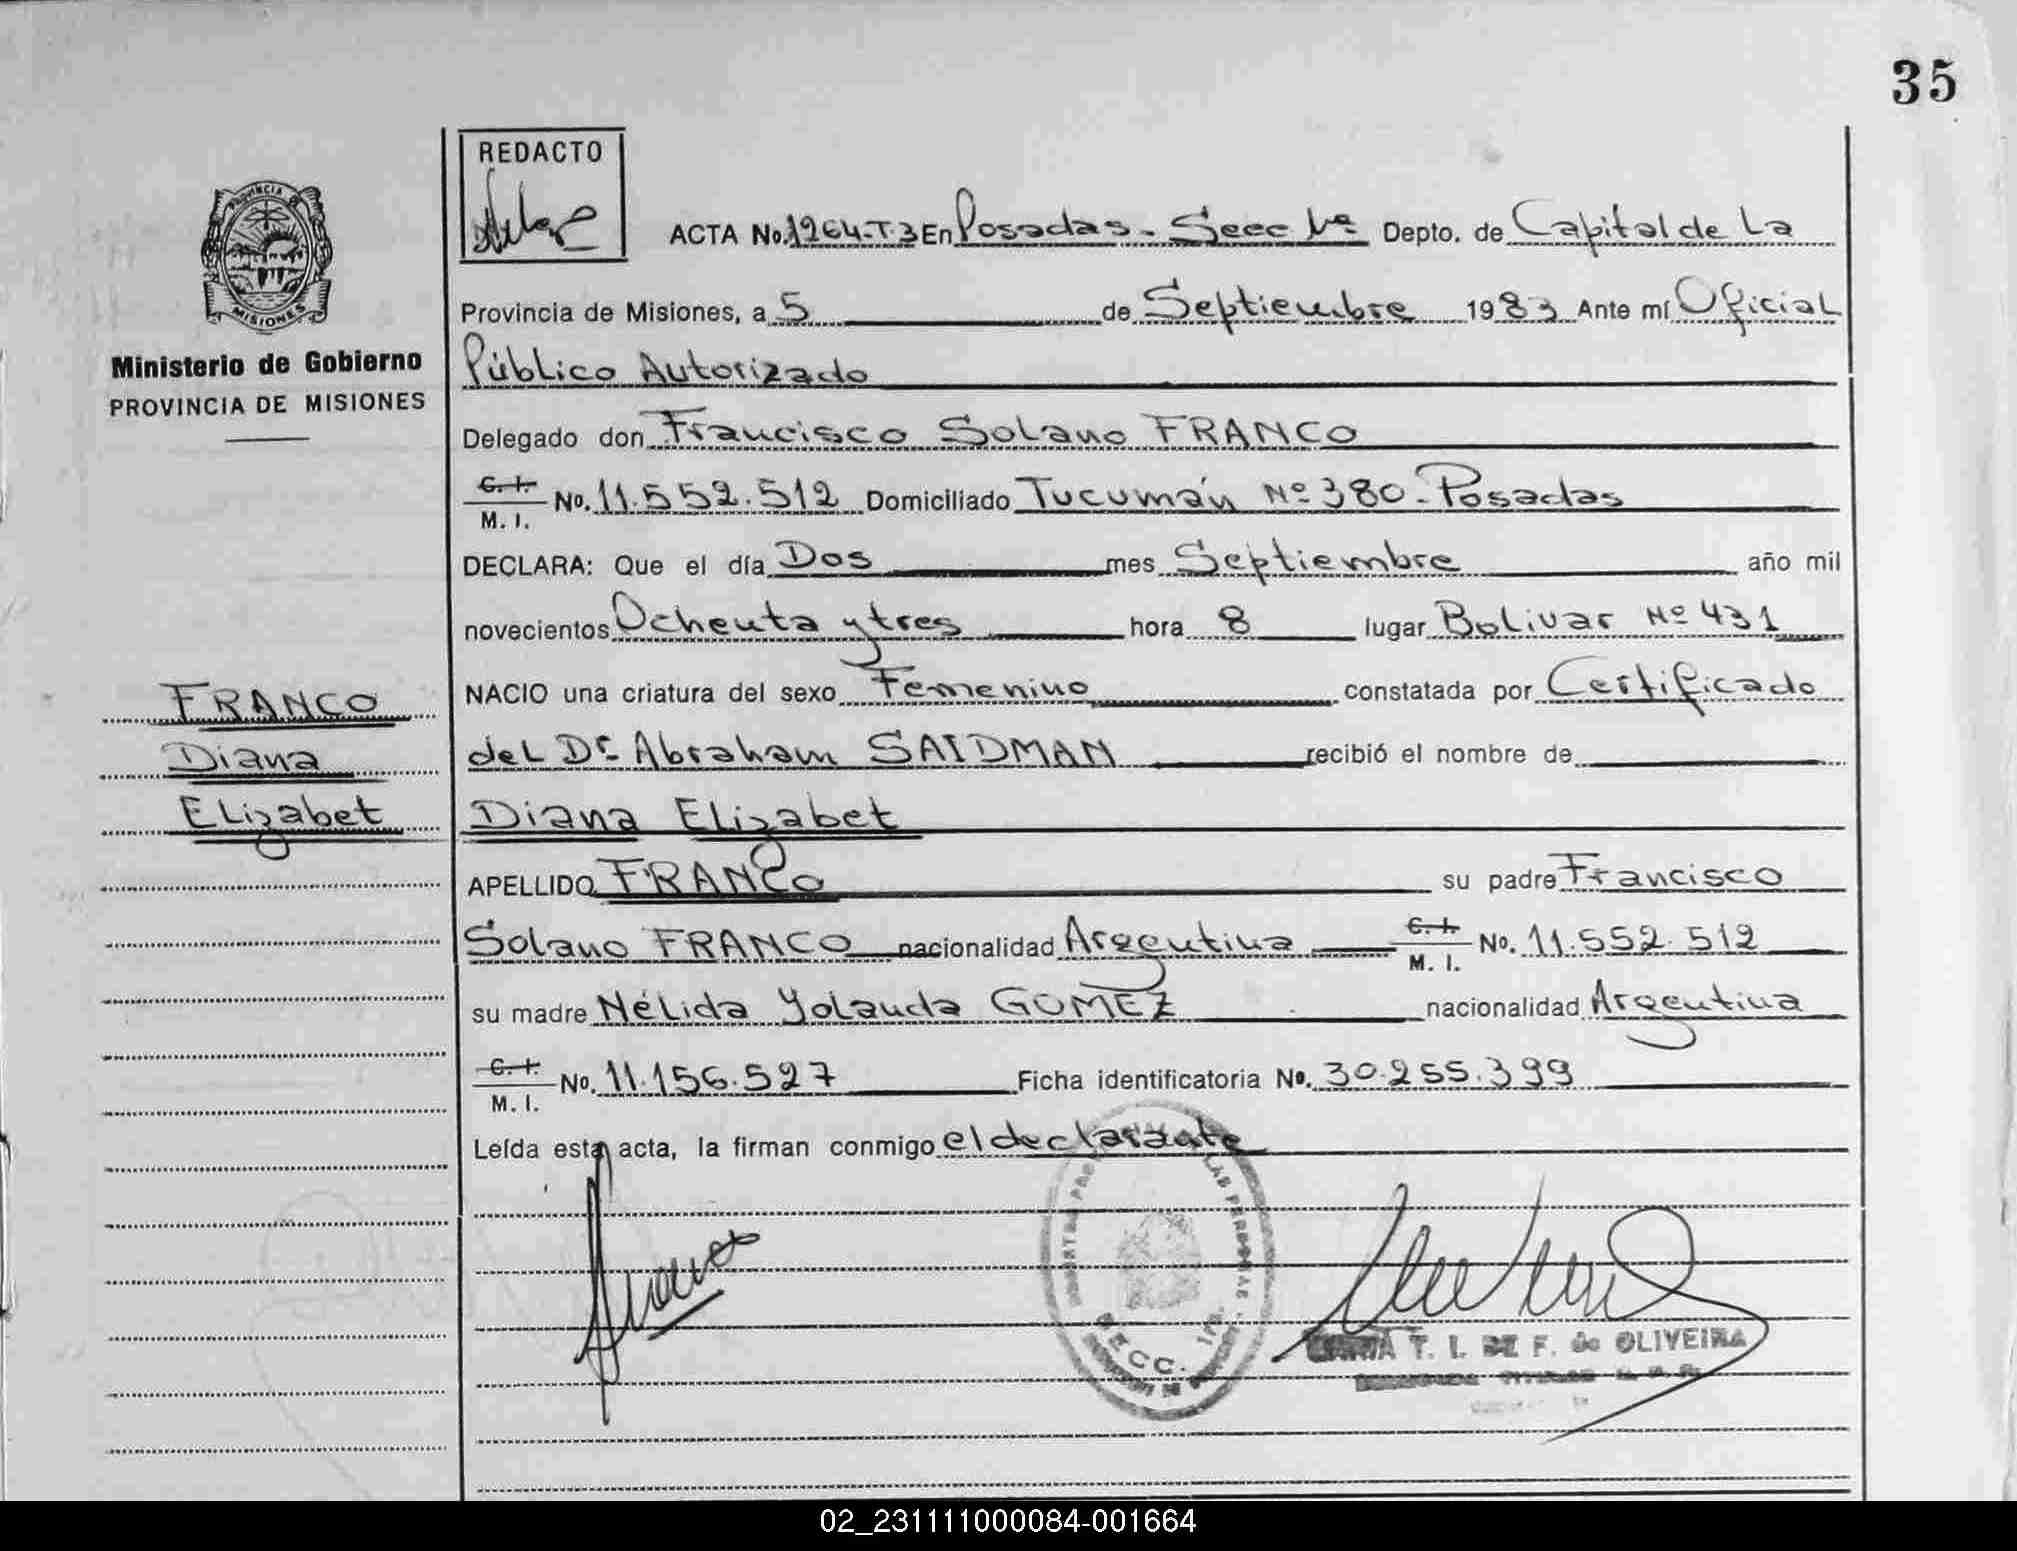 35
REDACTO
PROVINCIA
MISIONES
Ministerio de Gobierno
PROVINCIA DE MISIONES
ACTA No. 1264-T.3 En Posadas - Secc 1ª Depto. de Capital de La
Provincia de Misiones, a 5 de Septiembre 1983 Ante mí Oficial
Público Autorizado
Delegado don Francisco Solano FRANCO
C. I. M. I. No. 11.552.512 Domiciliado Tucumán Nº 380 - Posadas
DECLARA: Que el día Dos mes Septiembre año mil
novecientos Ochenta y tres hora 8 lugar Bolivar Nº 431
NACIO una criatura del sexo Femenino constatada por Certificado
del Dr Abraham SAIDMAN recibió el nombre de
Diana Elizabet
APELLIDO FRANCO su padre Francisco
Solano FRANCO nacionalidad Argentina C. I. M. I. No. 11.552.512
su madre Nélida Yolanda GOMEZ nacionalidad Argentina
C. I. M. I. No. 11.156.527 Ficha identificatoria No. 30.255.399
Leída esta acta, la firman conmigo el declarante
FRANCO
Diana
Elizabet
LAS PERSONAS
SECC. 1ra.
T. I. DE F. de OLIVEIRA
02_231111000084-001664